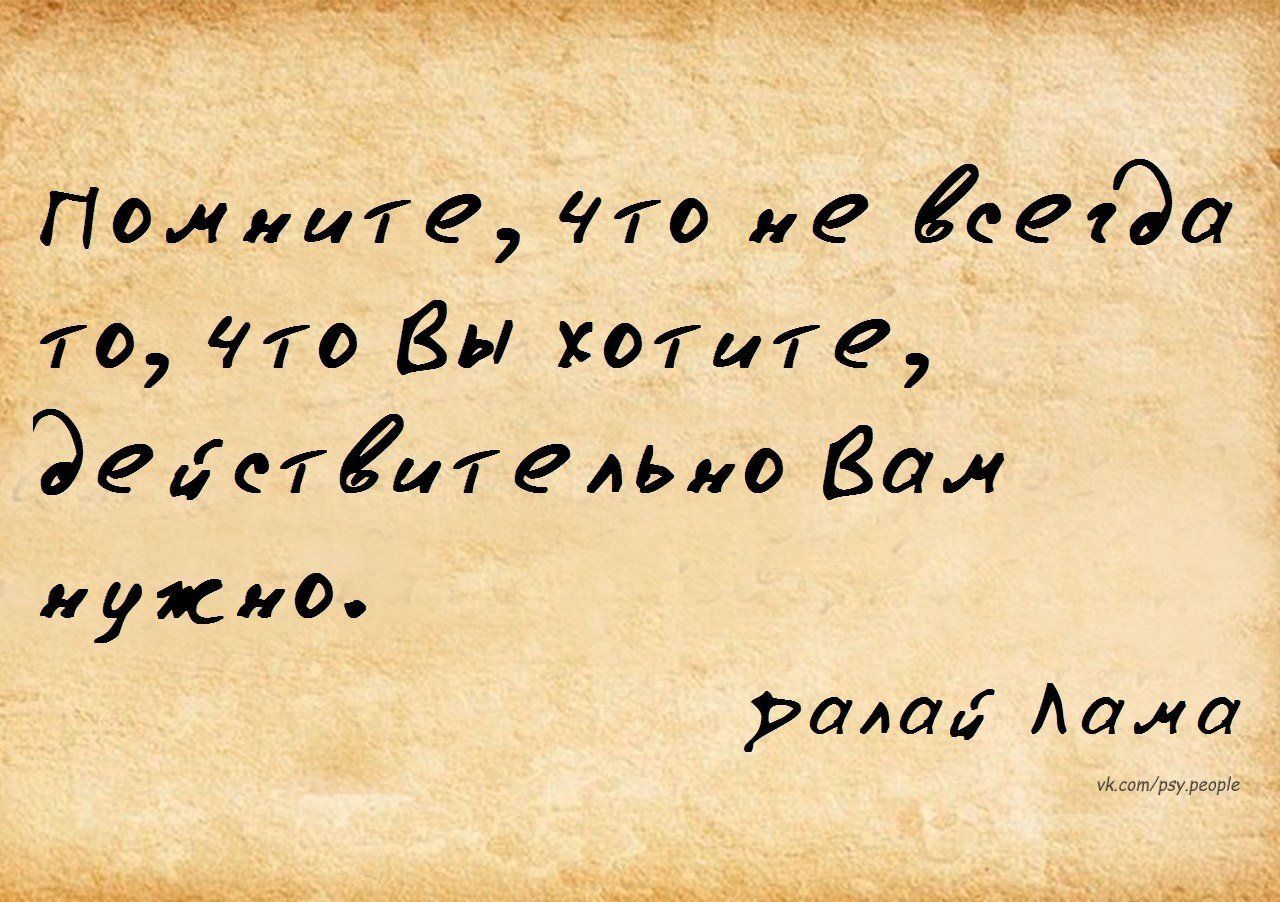 Помните, что не всегда
то, что Вы хотите,
действительно Вам
нужно.
Далай Лама
vk.com/psy.people